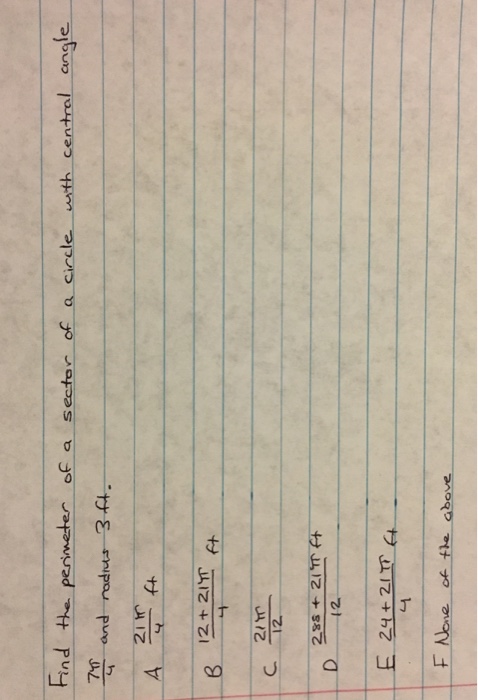 Find the perimeter of a sector of a circle with central angle
7π/4 and radius 3 ft.
A 21π/4 ft
B 12 + 21π/4 ft
C 21π/12
D 288 + 21π/12 ft
E 24 + 21π/4 ft
F None of the above